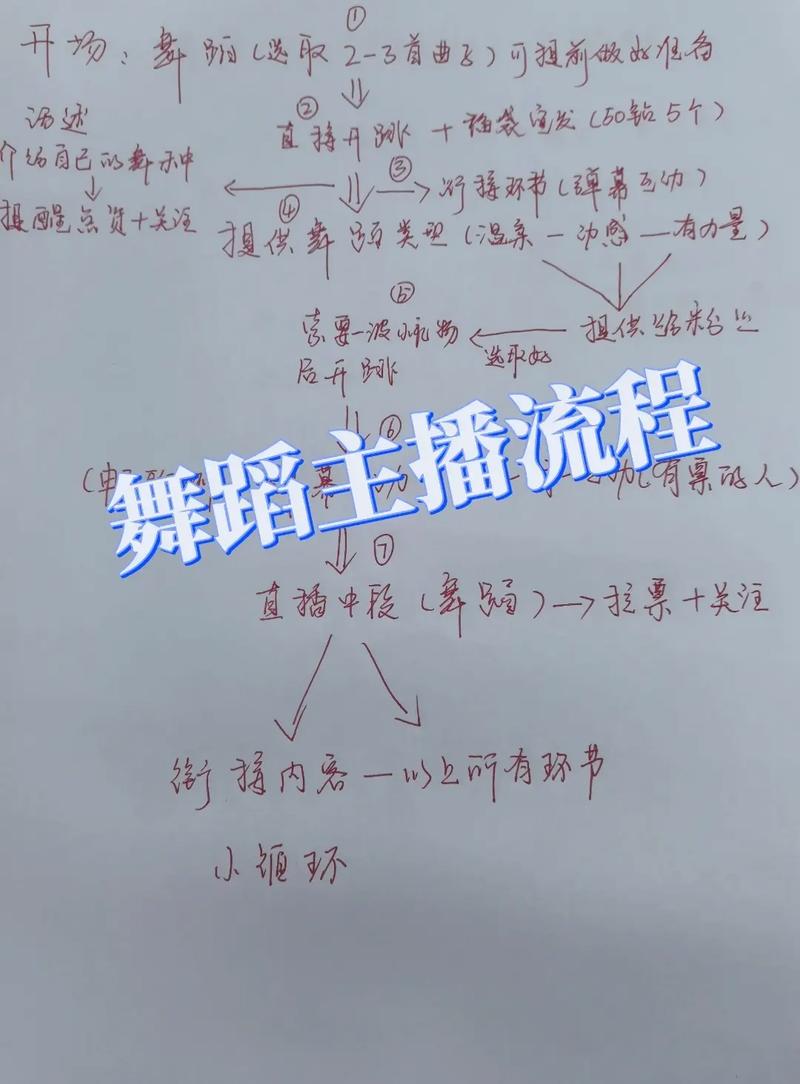 ①
开场:舞蹈(选取2-3首曲子)可提前做好准备
②
直接开跳+福袋宣发(50钻5个)
话述
介绍自己的舞种
提醒点赞+关注
③
衔接环节(弹幕互动)
④
提供舞蹈类型(温柔一动感一有力量)
提供给粉丝
选取好
⑤
索要一波小礼物
后开跳
⑥
(有票的人)
舞蹈主播流程
⑦
直播中段(舞蹈)→拉票+关注
衔接内容一以上所有环节
小循环